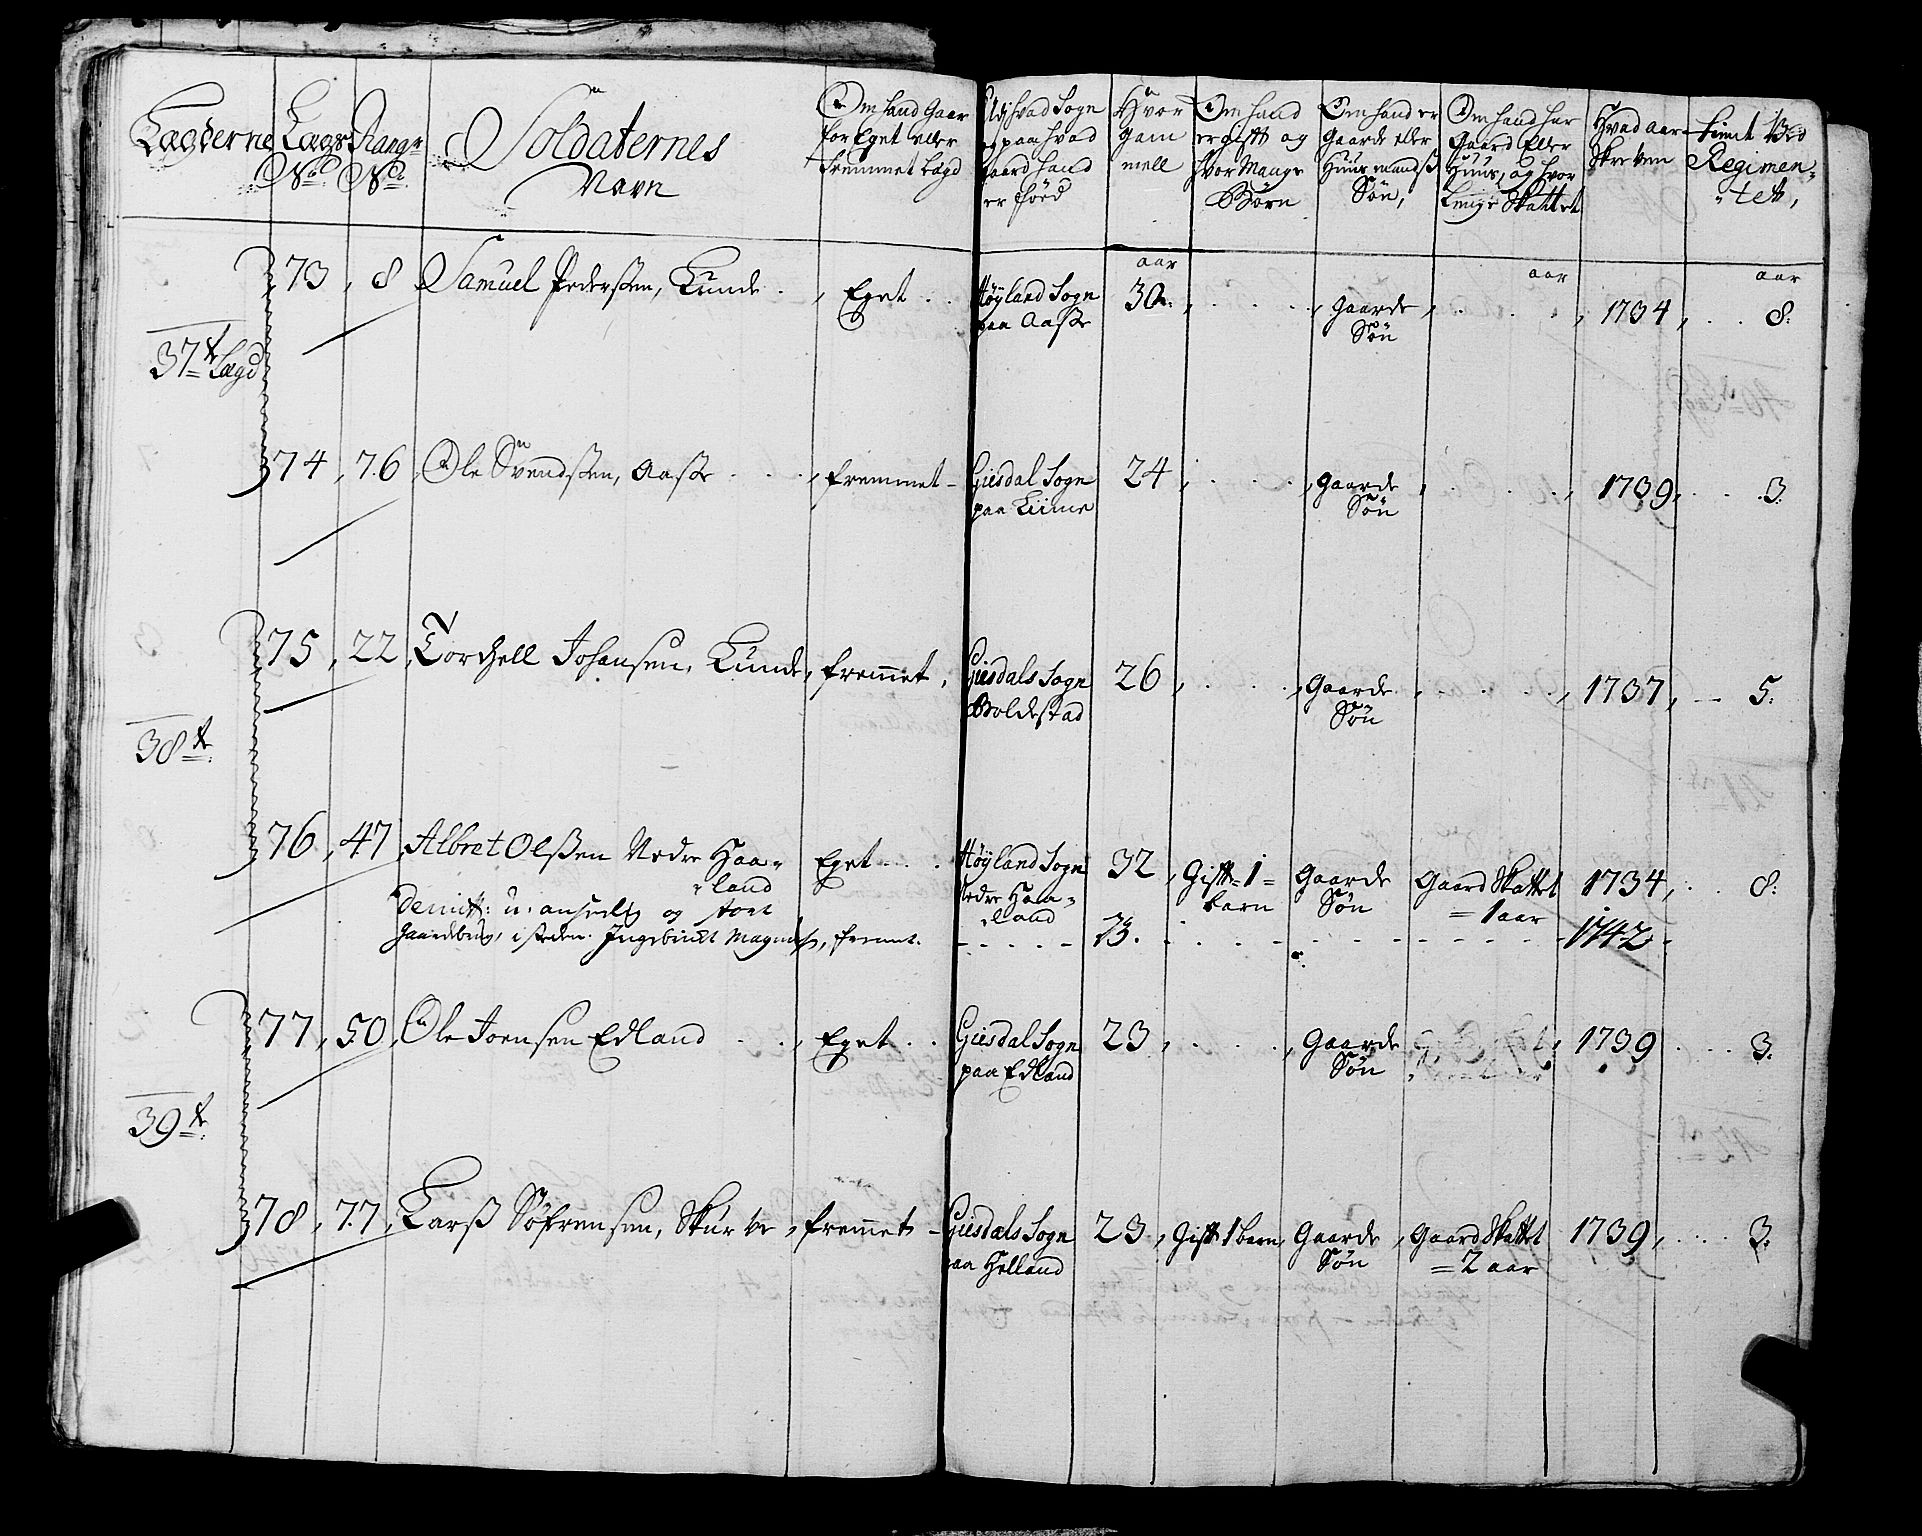 Lægderne
Lægs
No:
Rangr
No:
Soldaternes
Navn
Om hand Gaar
for Eget eller
fremmet Lægd
Udj hvad Sogn
og paa hvad
Gaard hand
er fød
Hvor
gam
mell
Om hand
er gift og
hvor Mange
Børn
Om hand er
Gaards eller
Huus mandß
Søn,
Om hand har
Gaard Eller
Huus, og hvor
Lenge Skattet
Hvad aar
Skreven
tient Ved
Regimen-
tet,
73, 8 Samuel Pederßen, Lunde . , Eget . . Høyland Sogn paa Aaße aar 30. , . . . , Gaards Søn , . . . aar , 1734, . . aar 8:
37te Lægd
74, 76, Ole Svendßen, Aaße . . . , fremmet - Giesdal Sogn paa Liime 24, . . . , Gaards Søn , . . . , 1739, . . . 3:
75, 22, Torchell Johansen, Lunde, fremmet, Giesdals Sogn Boldestad 26, . . . , Gaards Søn , . . . , 1737, . . 5:
38te
76, 47, Albret Olßen Nedre Haa-
land
Eget . . . Høyland Sogn Nedre Haa-
land
32, Gift 1 barn Gaards Søn Gaard Skattet
= 1 aar
1734, . . 8:
Demitt: og stort
Gaardebrug, i steden. Ingebrict , fremt. - - - - - 23. - - - - 1742 -
77, 50, Ole Joensen Edland . . , Eget . . Giesdal Sogn paa Edland 23, . . . , Gaards Søn 1739 . . . 3:
39te
78, 77, Larß Söfrensen, Skurve, fremmet - Giesdals Sogn paa Helland 23, Gift 1 barn, Gaards Søn , Gaard Skattet
= 2 aar
1739, . . . 3: